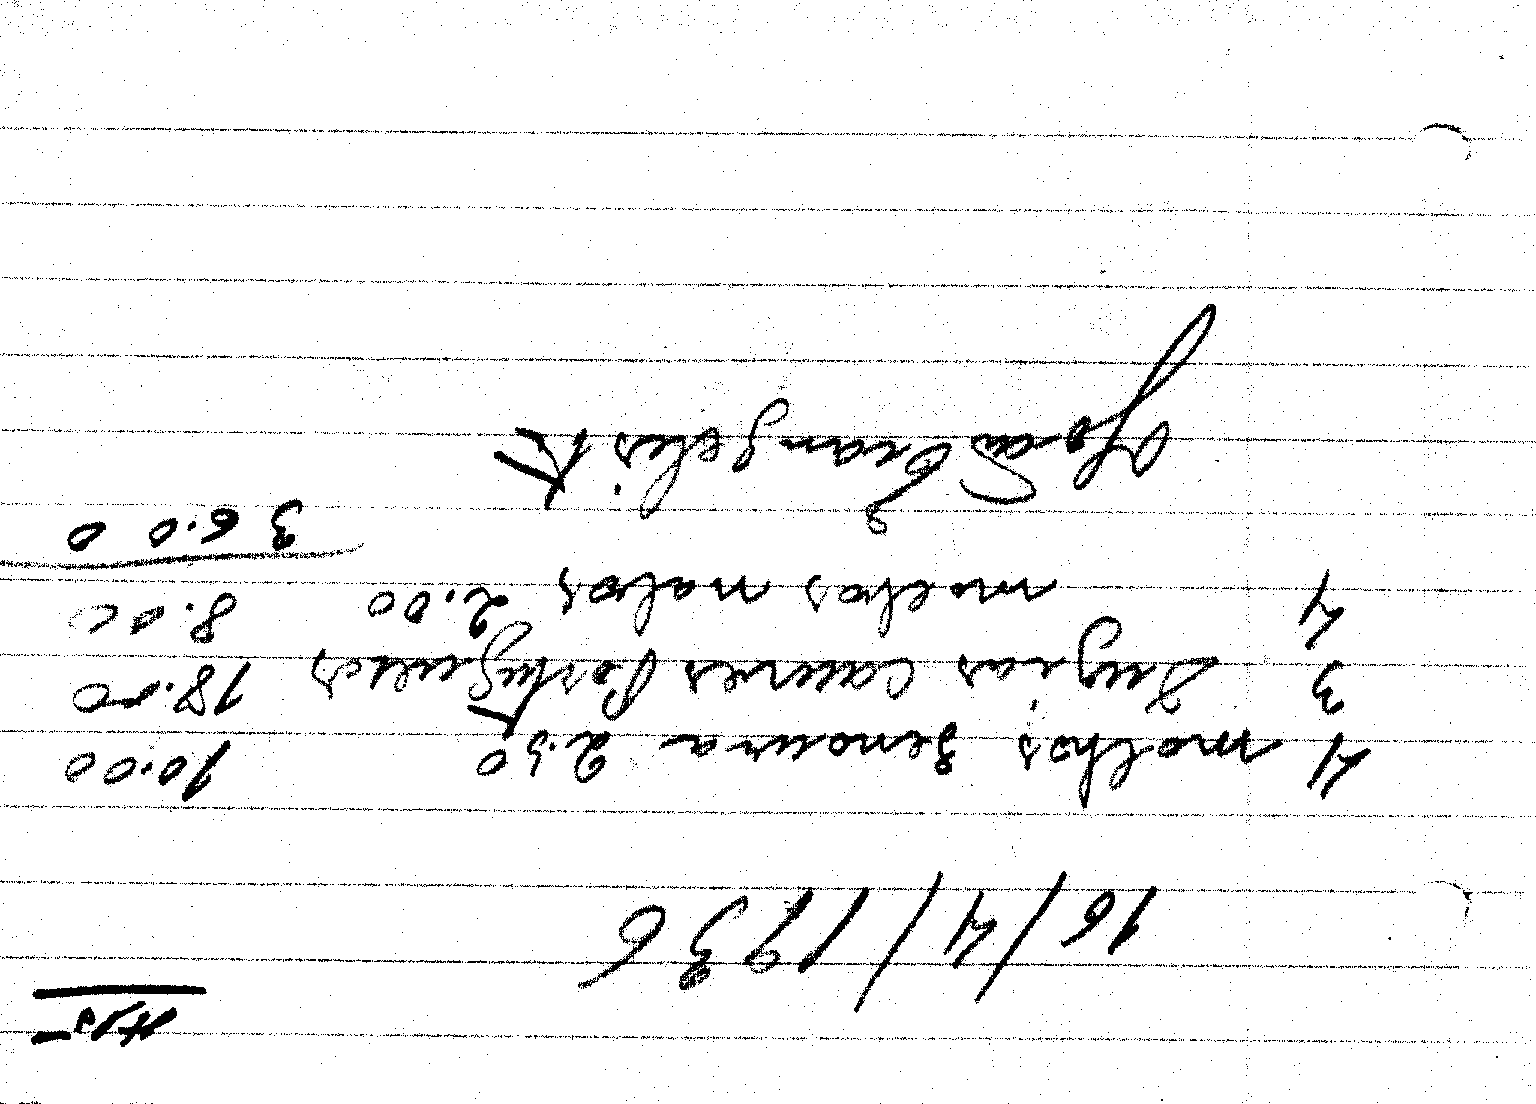 16/4/1936
4 molhos Senoura 2.50 10.00
3 Duzias couves Portuguesas 18.00
4 molhos nabos 2.00 8.00
36.00
João Evangelista